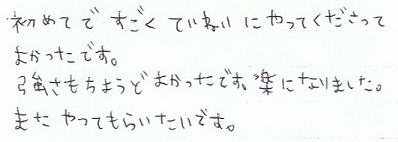 初めてで すごく ていねいにやってくださって
よかったです。
強さもちょうどよかったです。楽になりました。
また やってもらいたいです。